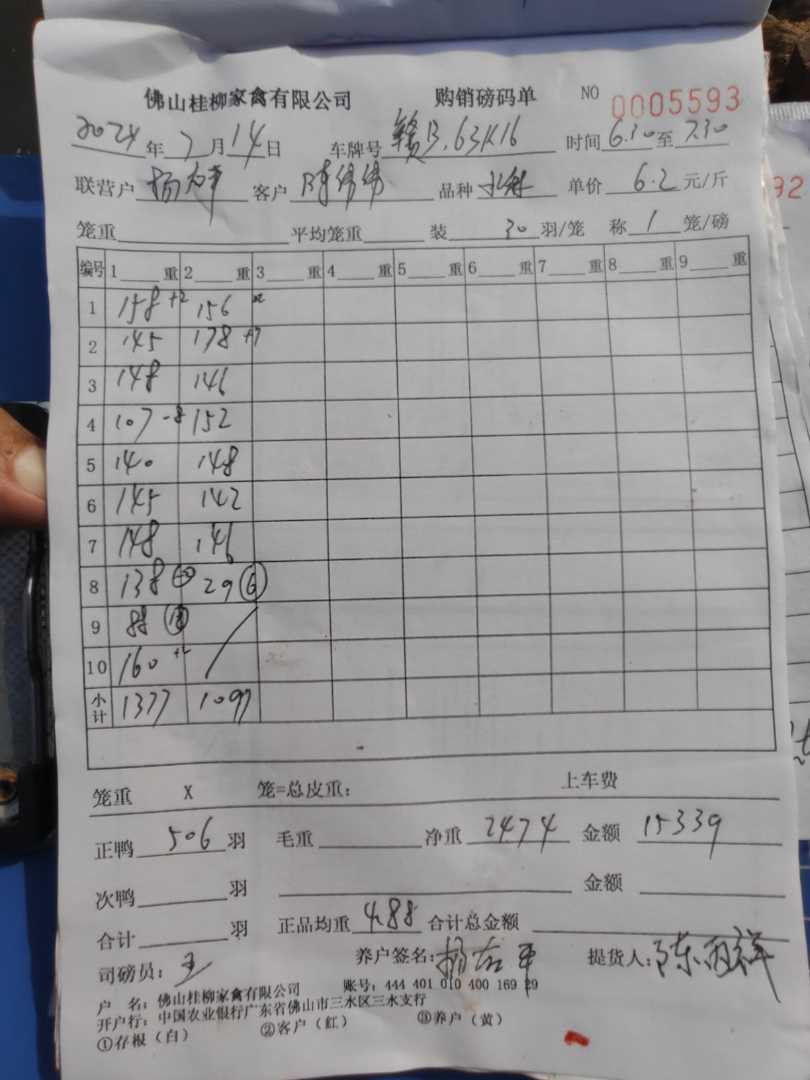 佛山桂柳家禽有限公司 购销磅码单 NO 0005593
2024年7月14日 车牌号 赣B.63K16 时间 6.30至7.30
联营户 客户 品种 单价 6.2 元/斤
笼重 平均笼重 装 30 羽/笼 称 1 笼/磅
编号 1 重 2 重 3 重 4 重 5 重 6 重 7 重 8 重 9 重
1 158 +2 156
2 145 178 +7
3 148 146
4 107 -8 152
5 140 148
6 145 142
7 148 146
8 138 29 ⑥
9 88
10 160
小计 1377 1097
笼重 X 笼=总皮重: 上车费
正鸭 506 羽 毛重 净重 2474 金额 15339
次鸭 羽 金额
合计 羽 正品均重 4.88 合计总金额
司磅员: 王 养户签名: 杨 平 提货人: 陈 祥
户 名: 佛山桂柳家禽有限公司 账号: 444 401 010 400 169 29
开户行: 中国农业银行广东省佛山市三水区三水支行
①存根(白) ②客户(红) ③养户(黄)